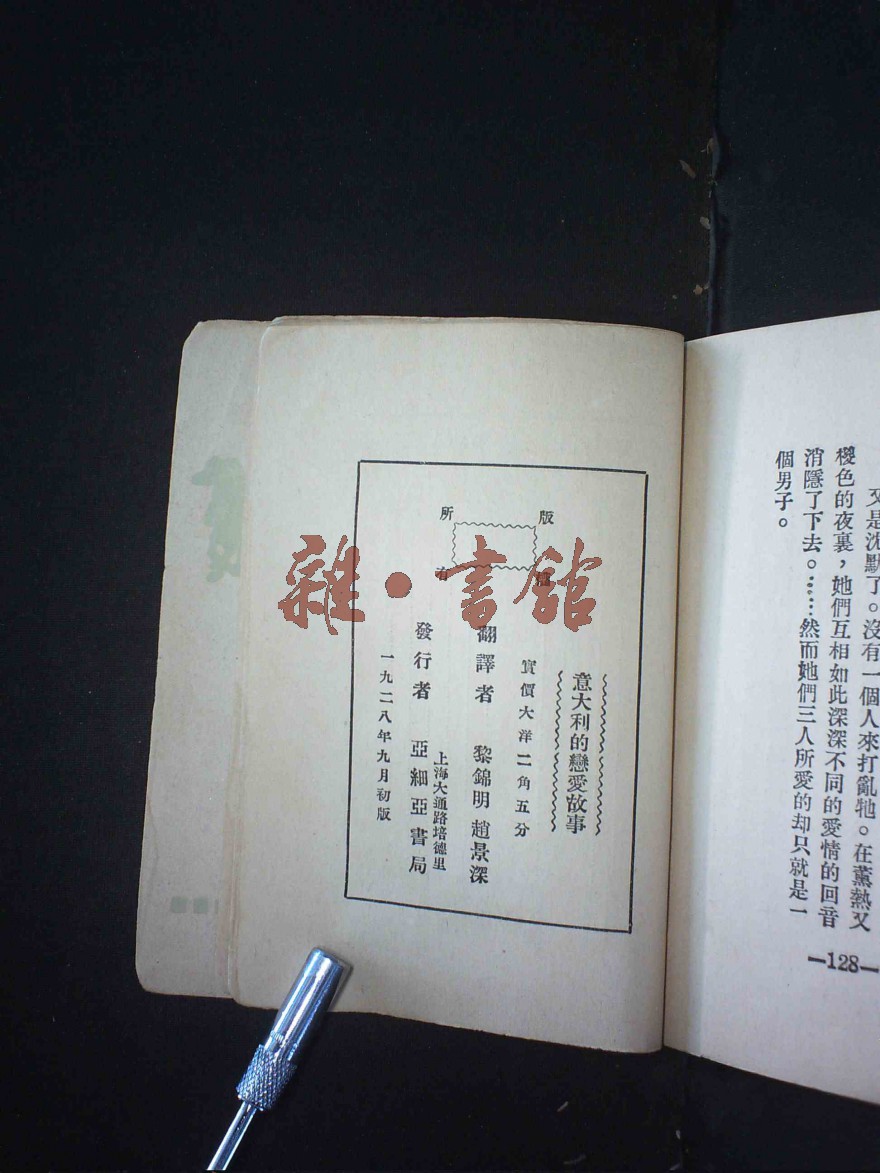 又是沈默了。沒有一個人來打亂牠。在薰熱又
櫻色的夜裏，她們互相如此深深不同的愛情的回音
消隱了下去。……然而她們三人所愛的却只就是一
個男子。
—128—
版
所
有
意大利的戀愛故事
實價大洋二角五分
翻譯者 黎錦明 趙景深
上海大通路培德里
發行者 亞細亞書局
一九二八年九月初版
雜·書館